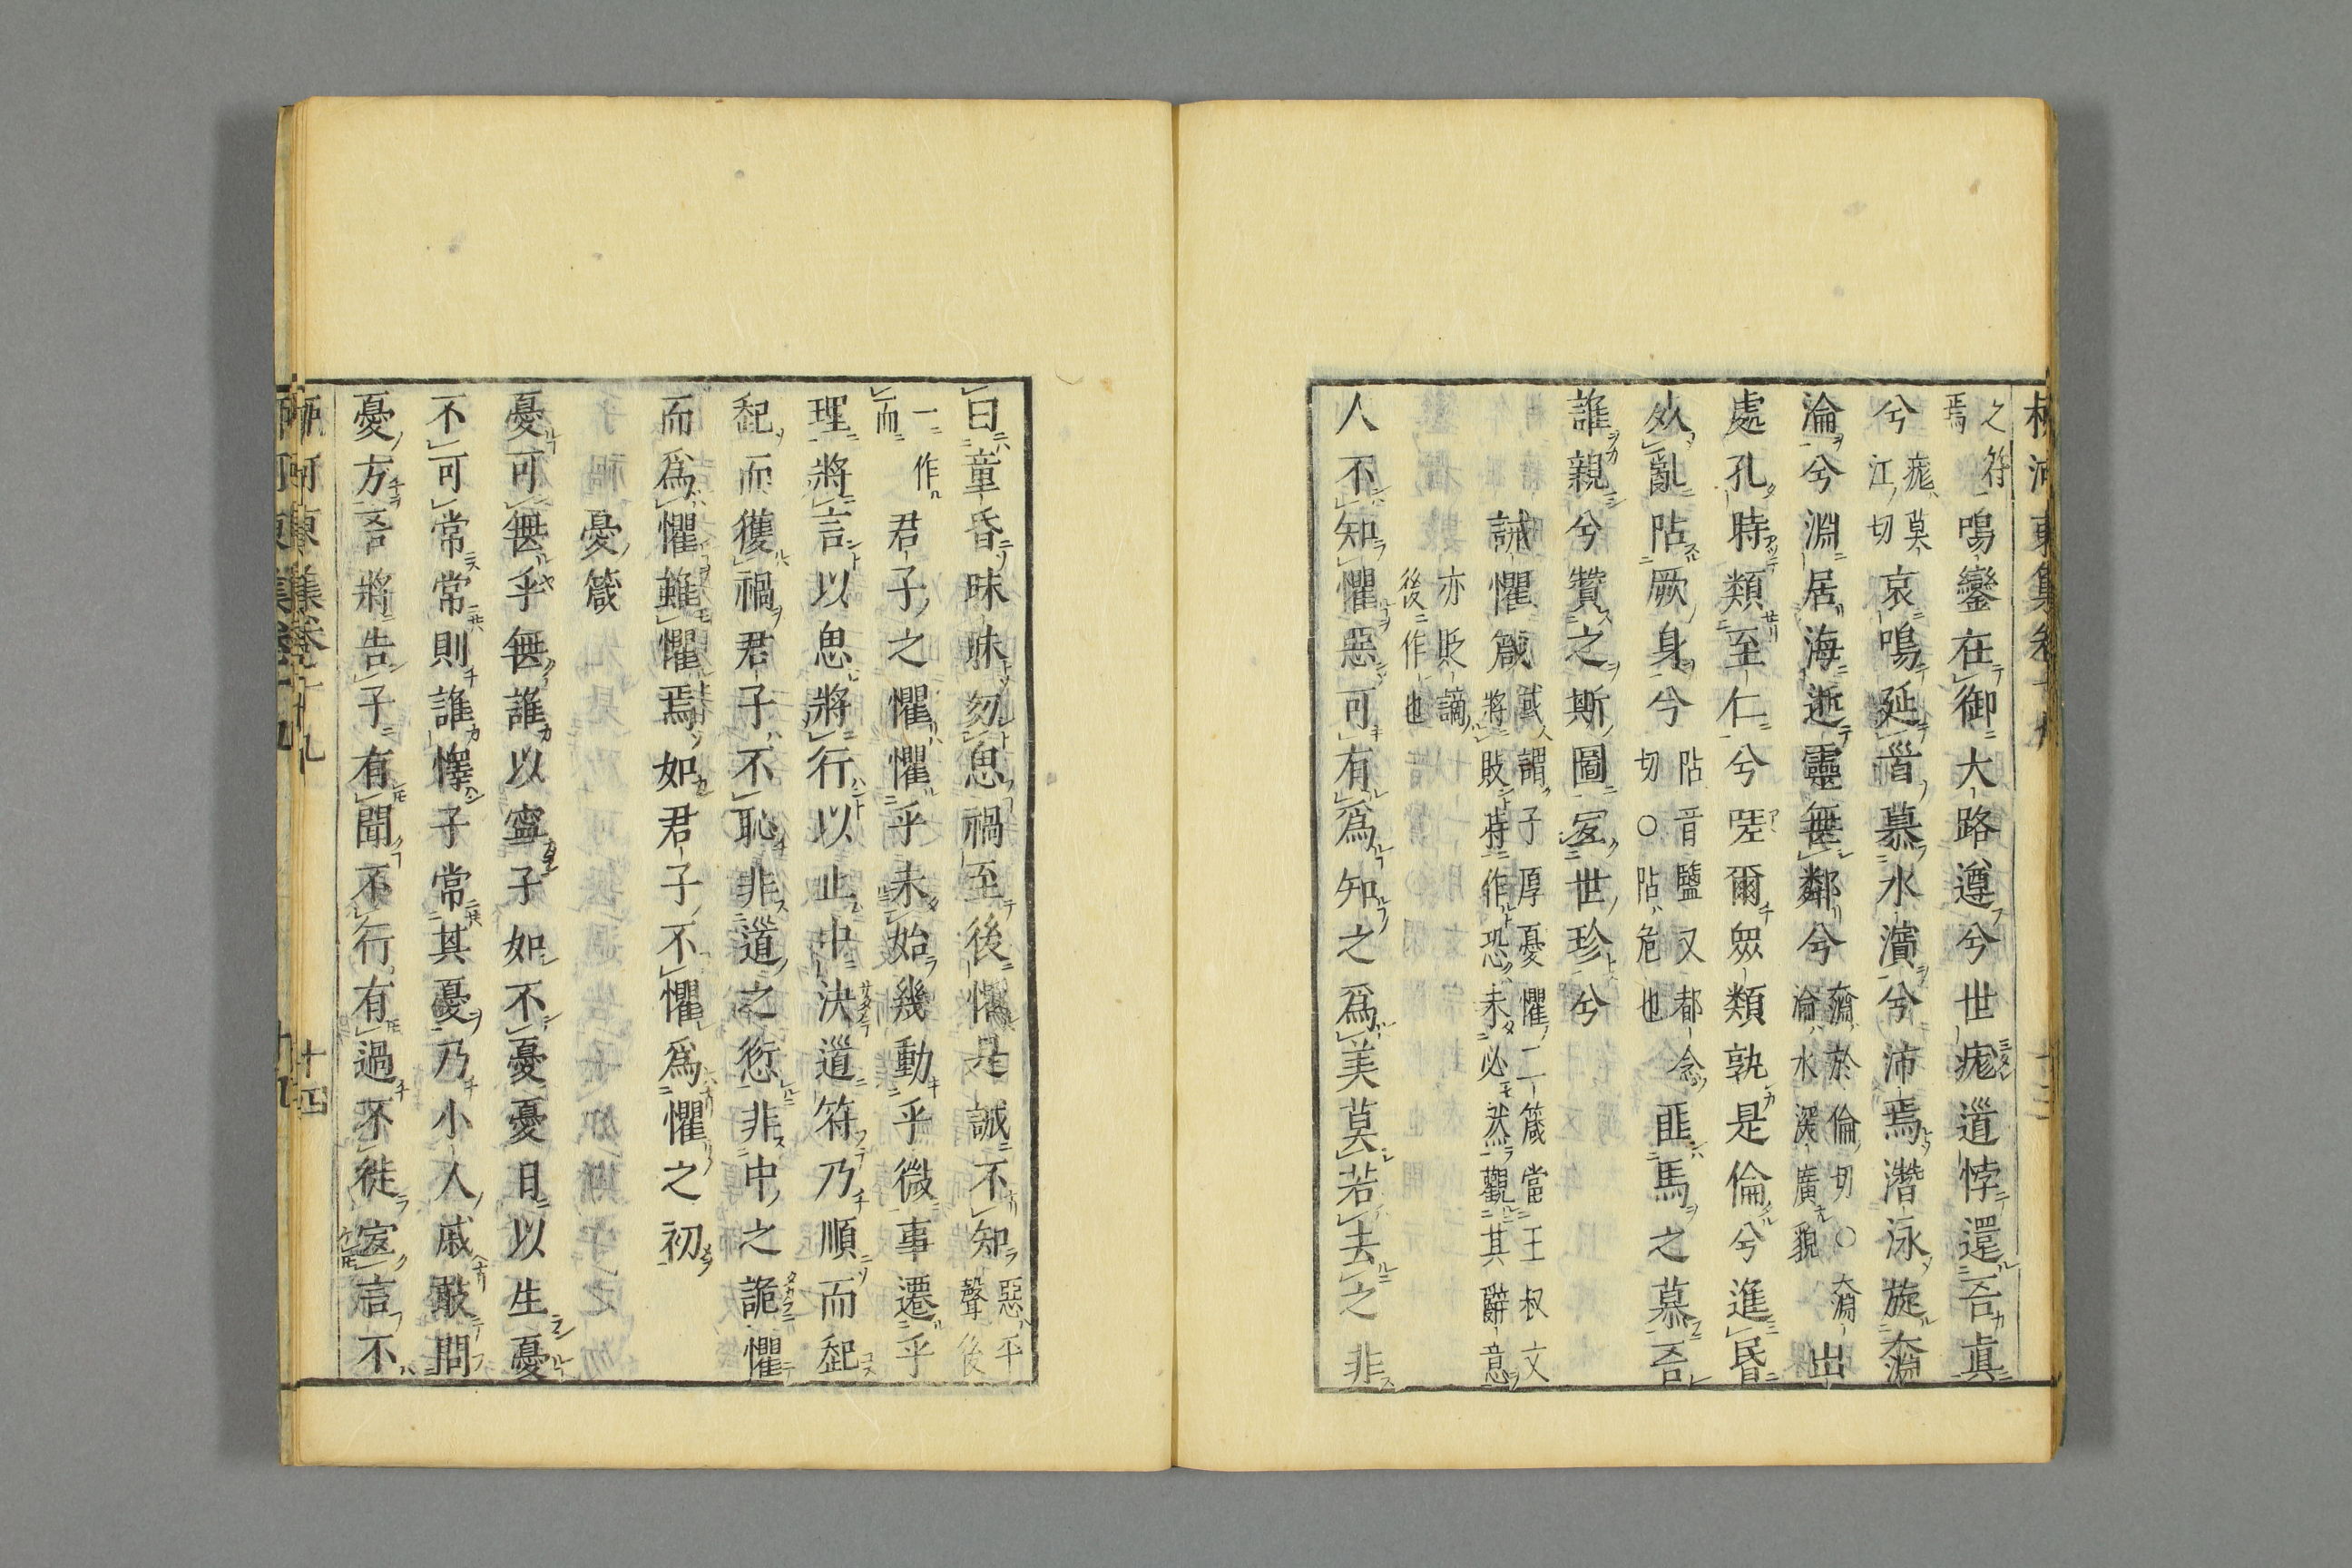 柳河東集卷十九 十三
之符焉 鳴鑾在御大路遵兮世痝道悖還吾眞
兮 痝莫江切 哀鳴延首慕水濱兮沛焉潛泳旋奫
淪兮淵居海逝靈無鄰兮 奫於倫切○奫淵淪水深廣貌 出
處孔時類至仁兮嗟爾眾類孰是倫兮進昏
死亂阽厥身兮 阽音鹽又都念切○阽危也 匪馬之慕吾
誰親兮贊之斯圖寔世珍兮
誡懼箴 或人謂子厚憂懼二箴當王叔文將敗時作恐未必然觀其辭意
亦貶謫後作也
人不知懼惡可有爲知之爲美莫若去之非
曰童昏昧昧勿思禍至後懼是誠不知 惡平聲後
一作而 君子之懼懼乎未始幾動乎微事遷乎
理將言以思將行以止中決道符乃順而起
起而獲禍君子不恥非道之愆非中之詭懼
而爲懼雖懼焉如君子不懼爲懼之初
憂箴
憂可無乎無誰以寧子如不憂憂日以生憂
不可常常則誰懌子常其憂乃小人戚敢問
憂方吾將告子有聞不行有過不徙寔言不
柳河東集卷十九 十四